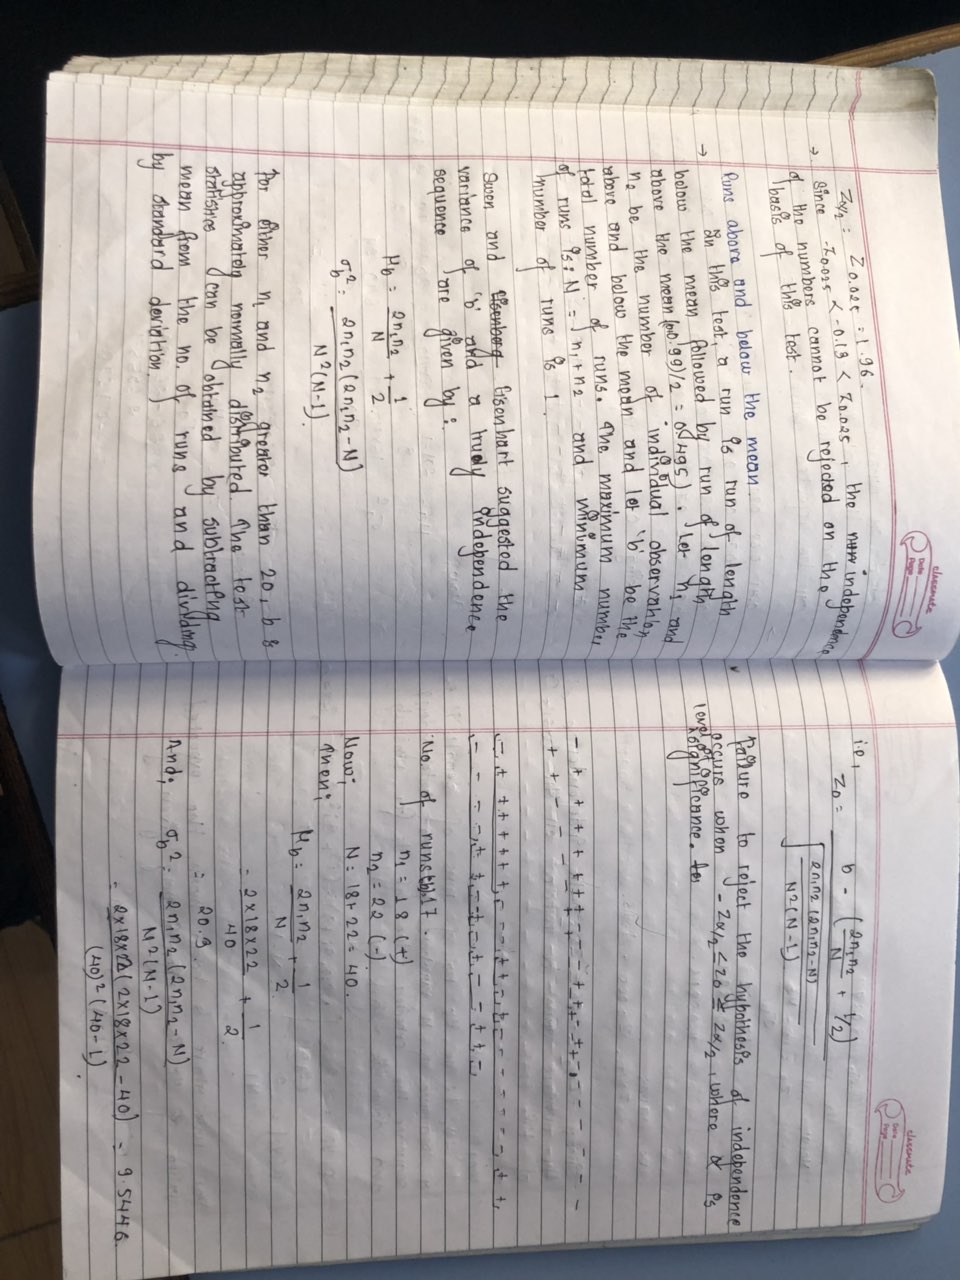 classmate
Date
Page
Zα/2 = Z0.025 = 1.96.
→ Since -Z0.025 < -0.19 < Z0.025, the independence
of the numbers cannot be rejected on the
basis of this test.
Runs above and below the mean
→ In this test, a run is run of length
below the mean followed by run of length
above the mean (0.99)/2 = 0.495). let n1 and
n2 be the number of individual observation
above and below the mean and let 'b' be the
total number of runs. The maximum number
of runs is: N = n1 + n2 and minimum
number of runs is 1.
Swen and Eisenhart suggested the
variance of 'b' and a trudy independence
sequence are given by:
μb = 2n1n2/N + 1/2
σb² = 2n1n2(2n1n2-N)/N²(N-1).
For either n1 and n2 greater than 20, b is
approximately normally distributed The test
statistics can be obtained by subtracting
mean from the no. of runs and dividing
by standard deviation.
classmate
Date
Page
i.e,
Z0 = b - (2n1n2/N + 1/2) / √(2n1n2(2n1n2-N)/N²(N-1))
Failure to reject the hypothesis of independence
occurs when - Zα/2 ≤ Z0 ≤ Zα/2, where α is
level of significance.
No. of runs(b)=17.
n1 = 18 (+)
n2 = 22 (-).
Now; N = 18+22 = 40.
Then;
μb = 2n1n2/N + 1/2
= 2×18×22/40 + 1/2.
= 20.3.
And; σb² = 2n1n2(2n1n2-N)/N²(N-1)
= 2×18×22(2×18×22-40)/(40)²(40-1) = 9.5446.